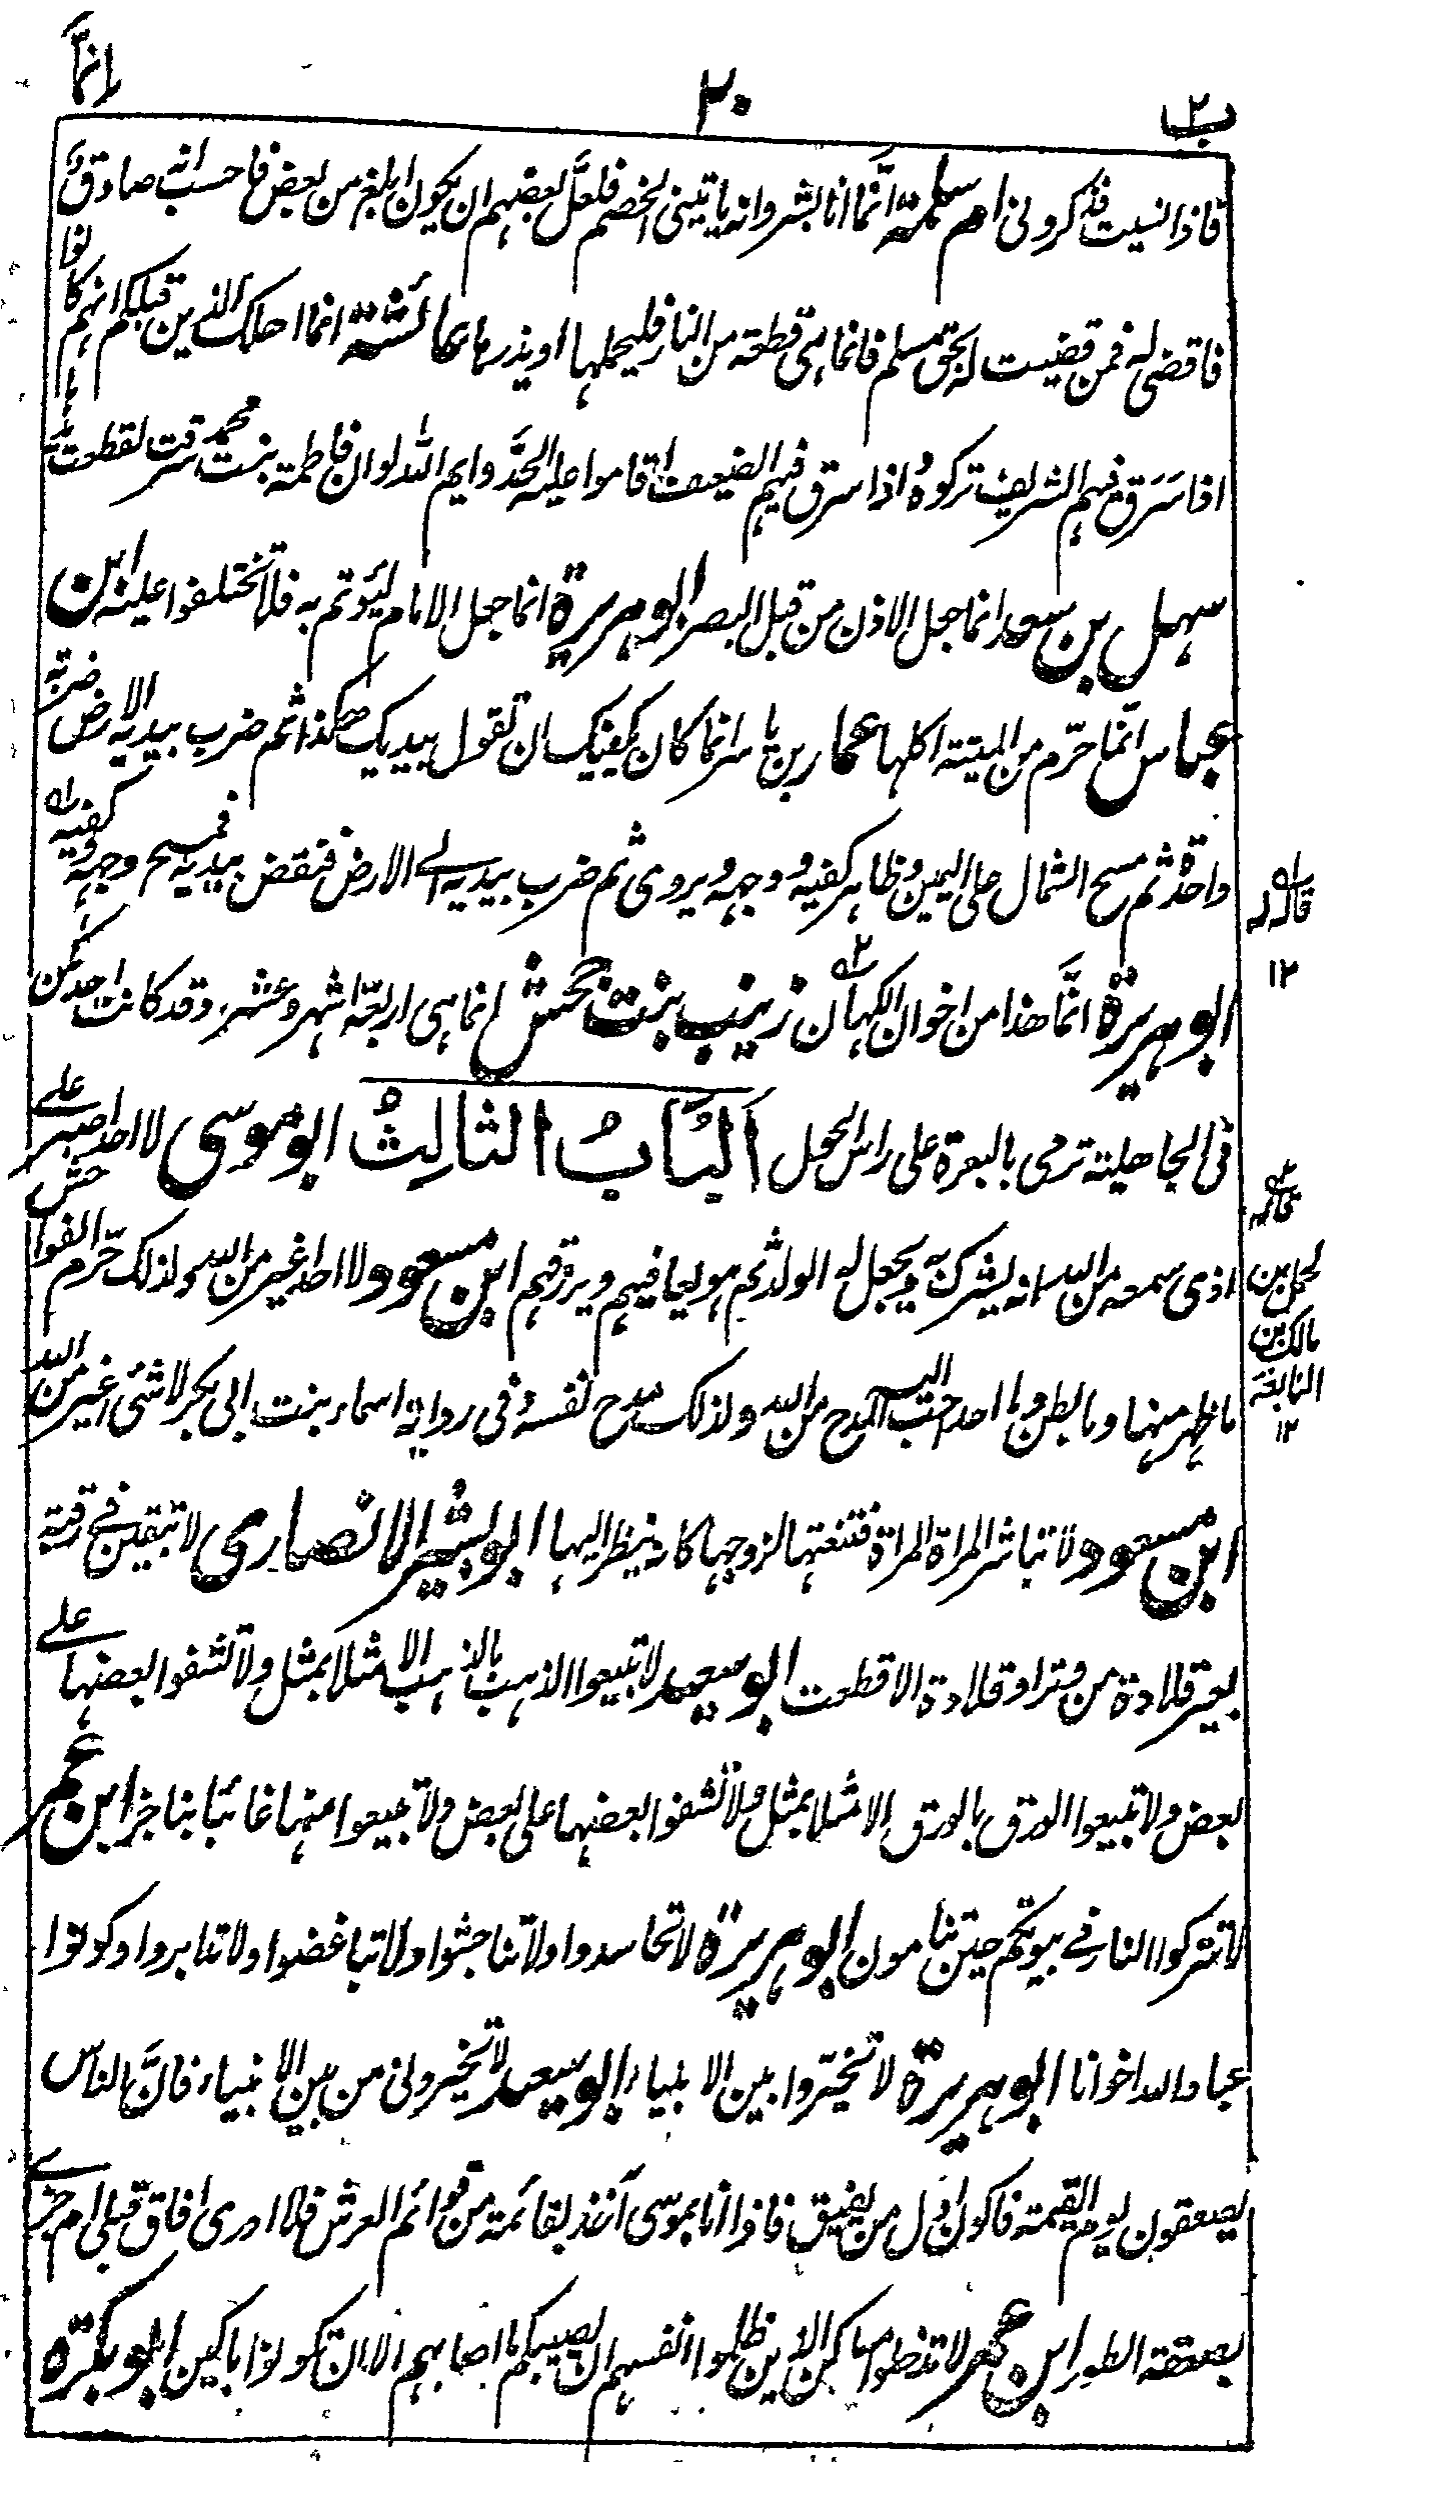 انما
٣٠
ب٢
فاذا نسيت فذكرونى ام سلمة انَّما انا بشر وانه ياتينى الخصم فلعلَّ بعضهم ان يكون ابلغ من بعض فاحسب انه صادق
فاقضى له فمن قضيت له بحق مسلم فانما هى قطعة من النار فليحملها او يذرها عائشة انما اهلك الذين قبلكم انهم كانوا
اذا سَرَق فيهم الشريف تركوهُ اذا سرق فيهم الضعيف اقاموا عليه الحدَّ وايم الله لو ان فاطمة بنت محمد سرقت لقطعت يدها
سهل بن سعد انما جعل الاذن من قبل البصر ابو هريرة انما جعل الامام ليؤتم به فلا تختلفوا عليه ابن
عباس انّما حرّم من الميتة اكلها عمار بن ياسر انما كان يكفيك ان تقول بيديك هكذا ثم ضرب بيديه الارض ضربة
واحدة ثم مسح الشمال على اليمين وظاهر كفيه ووجهه ويروى ثم ضرب بيديه الى الارض فنفض بيديه فمسح وجهه وكفيه
ابو هريرة انَّما هذا من اخوان الكهان زينب بنت جحش انما هى اربعة اشهر وعشر وقد كانت احدكن
فى الجاهلية ترمى بالبعرة على راس الحول اَلبَابُ الثالِثُ ابو موسى لا احد اصبر على
اذى سمعه من الله انه يشرك به ويجعل له الولد ثم هو يعافيهم ويرزقهم ابن مسعود لا احد اغير من الله ولذلك حَرّم الفواحش
ما ظهر منها وما بطن وما احد احب اليه المدح من الله ولذلك مدح نفسه وفى رواية اسماء بنت ابى بكر لا شئ اغير من الله
ابن مسعود لا تباشر المراة المراة فتنعتها لزوجها كانه ينظر اليها ابو بشير الانصارى لا تبقين فى رقبة
بعير قلادة من وتر او قلادة الا قطعت ابو سعيد لا تبيعوا الذهب بالذهب الا مثلا بمثل ولا تشفوا بعضها على
بعض ولا تبيعوا الورق بالورق الا مثلا بمثل ولا تشفوا بعضها على بعض ولا تبيعوا منها غائبا بناجز ابن عمر
لا تتركوا النار فى بيوتكم حين تنامون ابو هريرة لا تحاسدوا ولا تناجشوا ولا تباغضوا ولا تدابروا وكونوا
عباد الله اخوانا ابو هريرة لا تخيّروا بين الانبياء ابو سعيد لا تخيرونى من بين الانبياء فانَّ الناس
يصعقون يوم القيمة فاكون اول من يفيق فاذا انا بموسى آخذ بقائمة من قوائم العرش فلا ادرى افاق قبلى ام جزى
بصعقة الطور ابن عمر لا تدخلوا مساكن الذين ظلموا انفسهم ان يصيبكم ما اصابهم الا ان تكونوا باكين ابو بكرة
قاله
١٢
قاله
لحمل بن
مالك بن
النابغة
١٢